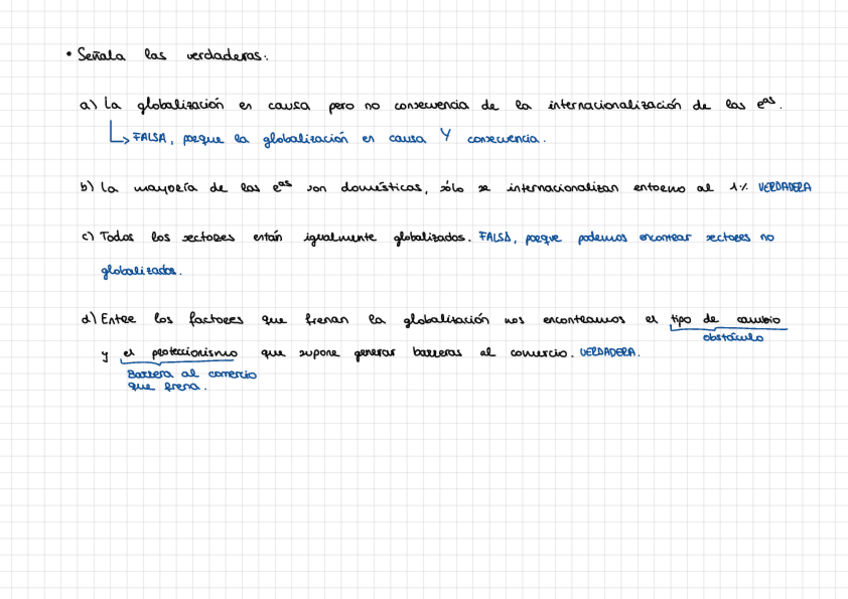 • Señala las verdaderas:
a) La globalización es causa pero no consecuencia de la internacionalización de las eas.
↳ FALSA, porque la globalización es causa Y consecuencia.
b) La mayoría de las eas son domésticas, sólo se internacionalizan entorno al 1% VERDADERA
c) Todos los sectores están igualmente globalizados. FALSA, porque podemos encontrar sectores no
globalizados.
d) Entre los factores que frenan la globalización nos encontramos el tipo de cambio
obstáculo
y el proteccionismo que supone generar barreras al comercio. VERDADERA.
Barrera al comercio
que frena.